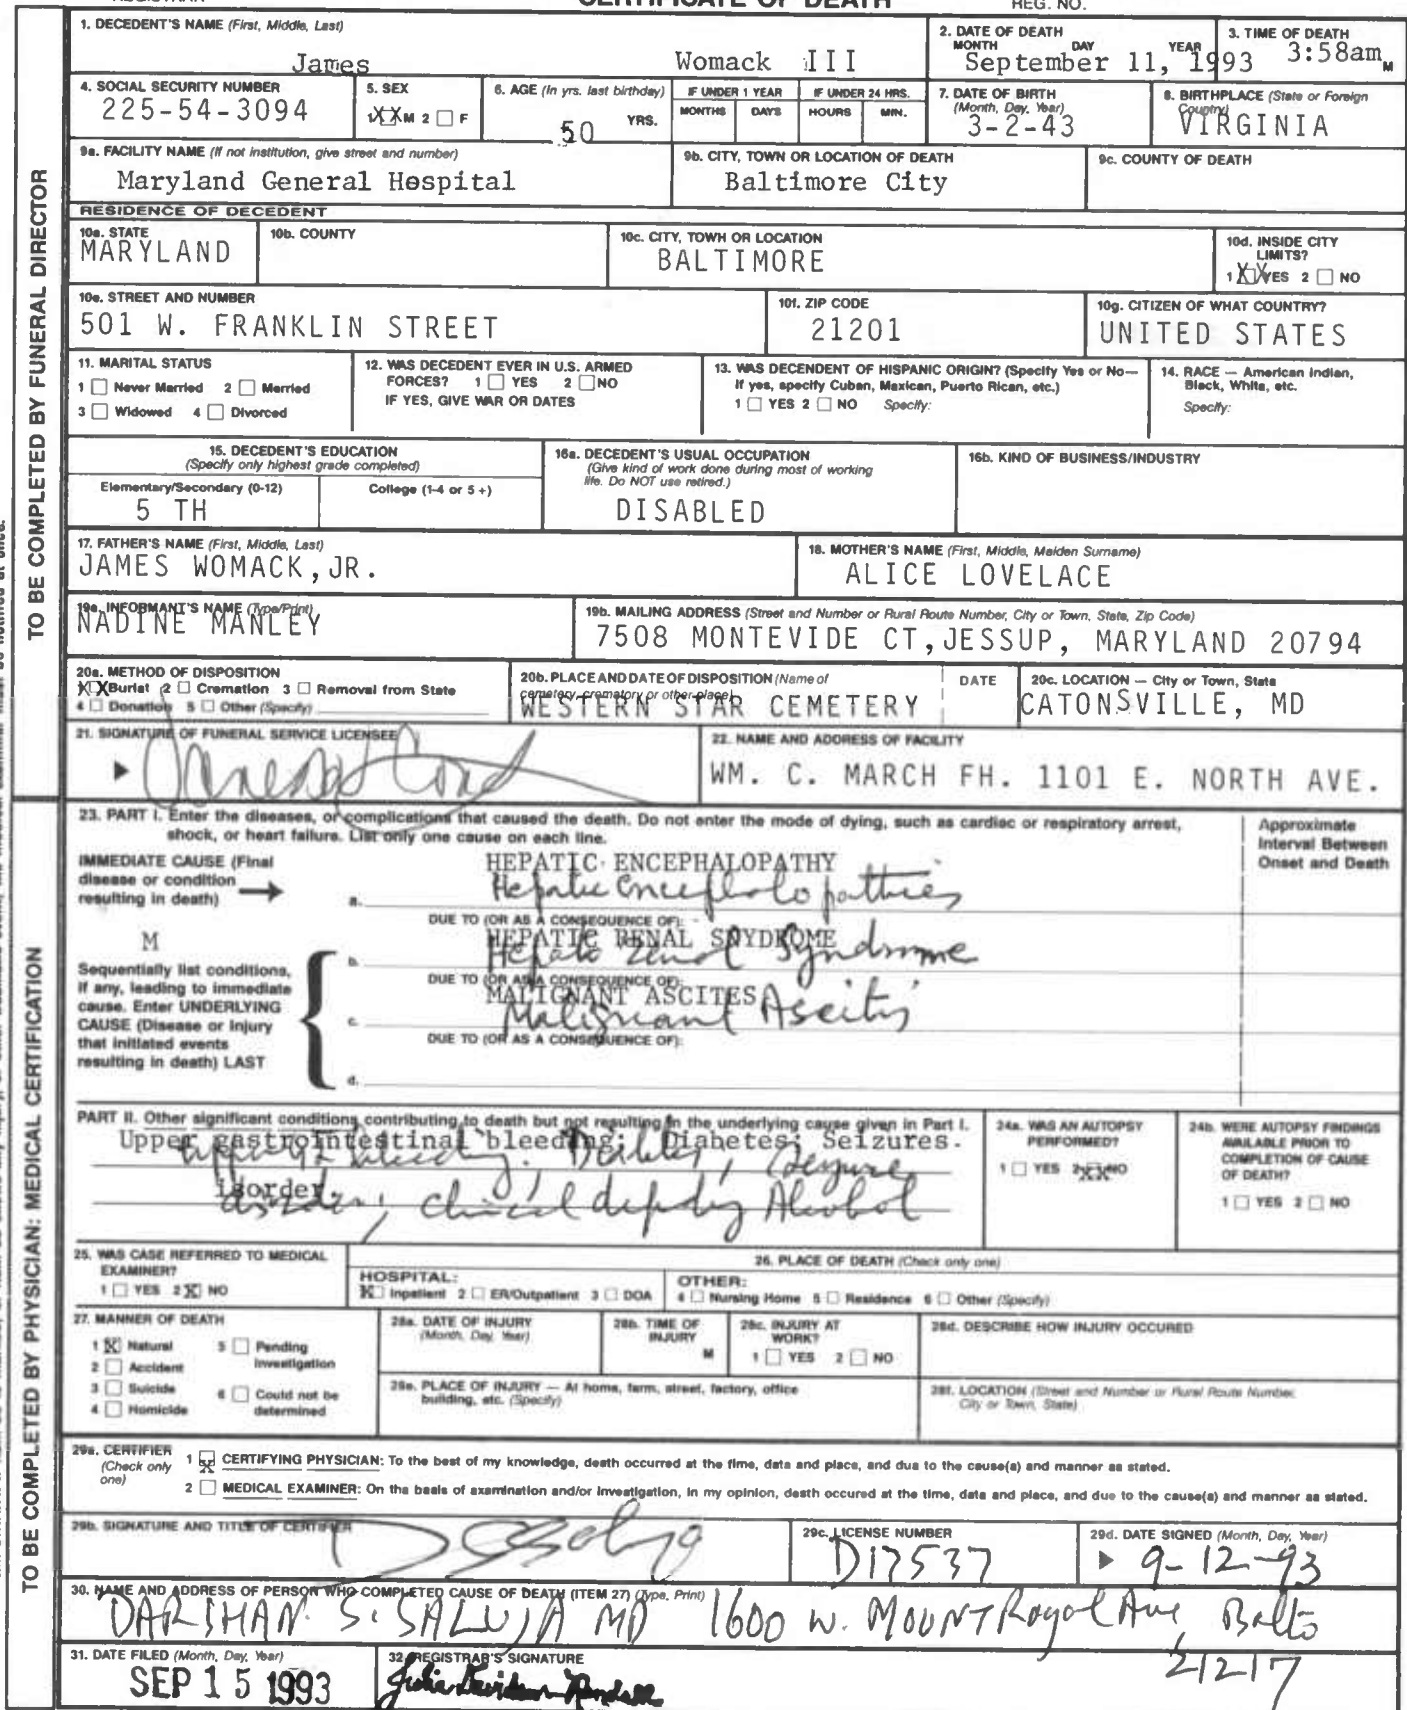 CERTIFICATE OF DEATH
REG. NO.
1. DECEDENT'S NAME (First, Middle, Last)
James Womack III
2. DATE OF DEATH
MONTH DAY YEAR
September 11, 1993
3. TIME OF DEATH
3:58am M
4. SOCIAL SECURITY NUMBER
225-54-3094
5. SEX
1 XX M 2 □ F
6. AGE (In yrs. last birthday)
50 YRS.
IF UNDER 1 YEAR
MONTHS DAYS
IF UNDER 24 HRS.
HOURS MIN.
7. DATE OF BIRTH
(Month, Day, Year)
3-2-43
8. BIRTHPLACE (State or Foreign
Country)
VIRGINIA
9a. FACILITY NAME (If not institution, give street and number)
Maryland General Hospital
9b. CITY, TOWN OR LOCATION OF DEATH
Baltimore City
9c. COUNTY OF DEATH
RESIDENCE OF DECEDENT
10a. STATE
MARYLAND
10b. COUNTY
10c. CITY, TOWN OR LOCATION
BALTIMORE
10d. INSIDE CITY
LIMITS?
1 XX YES 2 □ NO
10e. STREET AND NUMBER
501 W. FRANKLIN STREET
10f. ZIP CODE
21201
10g. CITIZEN OF WHAT COUNTRY?
UNITED STATES
11. MARITAL STATUS
1 □ Never Married 2 □ Married
3 □ Widowed 4 □ Divorced
12. WAS DECEDENT EVER IN U.S. ARMED
FORCES? 1 □ YES 2 □ NO
IF YES, GIVE WAR OR DATES
13. WAS DECENDENT OF HISPANIC ORIGIN? (Specify Yes or No—
If yes, specify Cuban, Mexican, Puerto Rican, etc.)
1 □ YES 2 □ NO Specify:
14. RACE — American Indian,
Black, White, etc.
Specify:
15. DECEDENT'S EDUCATION
(Specify only highest grade completed)
Elementary/Secondary (0-12)
5 TH
College (1-4 or 5+)
16a. DECEDENT'S USUAL OCCUPATION
(Give kind of work done during most of working
life. Do NOT use retired.)
DISABLED
16b. KIND OF BUSINESS/INDUSTRY
17. FATHER'S NAME (First, Middle, Last)
JAMES WOMACK,JR.
18. MOTHER'S NAME (First, Middle, Maiden Surname)
ALICE LOVELACE
19a. INFORMANT'S NAME (Type/Print)
NADINE MANLEY
19b. MAILING ADDRESS (Street and Number or Rural Route Number, City or Town, State, Zip Code)
7508 MONTEVIDE CT,JESSUP, MARYLAND 20794
20a. METHOD OF DISPOSITION
XX Burial 2 □ Cremation 3 □ Removal from State
4 □ Donation 5 □ Other (Specify)
20b. PLACE AND DATE OF DISPOSITION (Name of
cemetery, crematory or other place)
WESTERN STAR CEMETERY
DATE
20c. LOCATION — City or Town, State
CATONSVILLE, MD
21. SIGNATURE OF FUNERAL SERVICE LICENSEE
22. NAME AND ADDRESS OF FACILITY
WM. C. MARCH FH. 1101 E. NORTH AVE.
23. PART I. Enter the diseases, or complications that caused the death. Do not enter the mode of dying, such as cardiac or respiratory arrest,
shock, or heart failure. List only one cause on each line.
Approximate
Interval Between
Onset and Death
IMMEDIATE CAUSE (Final
disease or condition
resulting in death)
HEPATIC ENCEPHALOPATHY
a. Hepatic Encephalopathies
DUE TO (OR AS A CONSEQUENCE OF):
M
HEPATIC RENAL SNYDROME
b. Hepato Renal Syndrome
DUE TO (OR AS A CONSEQUENCE OF):
MALIGNANT ASCITES
c. Malignant Ascitis
DUE TO (OR AS A CONSEQUENCE OF):
d.
Sequentially list conditions,
if any, leading to immediate
cause. Enter UNDERLYING
CAUSE (Disease or injury
that initiated events
resulting in death) LAST
PART II. Other significant conditions contributing to death but not resulting in the underlying cause given in Part I.
Upper gastrointestinal bleeding; Diabetes; Seizures.
Upper GI bleeding, Diabetes, Seizure
isorder.
disorder, clinical Alcohol
24a. WAS AN AUTOPSY
PERFORMED?
1 □ YES 2 XX NO
24b. WERE AUTOPSY FINDINGS
AVAILABLE PRIOR TO
COMPLETION OF CAUSE
OF DEATH?
1 □ YES 2 □ NO
25. WAS CASE REFERRED TO MEDICAL
EXAMINER?
1 □ YES 2 X NO
26. PLACE OF DEATH (Check only one)
HOSPITAL:
X Inpatient 2 □ ER/Outpatient 3 □ DOA
OTHER:
4 □ Nursing Home 5 □ Residence 6 □ Other (Specify)
27. MANNER OF DEATH
1 X Natural 5 □ Pending
Investigation
2 □ Accident
3 □ Suicide 6 □ Could not be
determined
4 □ Homicide
28a. DATE OF INJURY
(Month, Day, Year)
28b. TIME OF
INJURY
M
28c. INJURY AT
WORK?
1 □ YES 2 □ NO
28d. DESCRIBE HOW INJURY OCCURED
28e. PLACE OF INJURY — At home, farm, street, factory, office
building, etc. (Specify)
28f. LOCATION (Street and Number or Rural Route Number,
City or Town, State)
29a. CERTIFIER
(Check only
one)
1 X CERTIFYING PHYSICIAN: To the best of my knowledge, death occurred at the time, data and place, and due to the cause(s) and manner as stated.
2 □ MEDICAL EXAMINER: On the basis of examination and/or investigation, in my opinion, death occured at the time, data and place, and due to the cause(s) and manner as stated.
29b. SIGNATURE AND TITLE OF CERTIFIER
29c. LICENSE NUMBER
D17537
29d. DATE SIGNED (Month, Day, Year)
9-12-93
30. NAME AND ADDRESS OF PERSON WHO COMPLETED CAUSE OF DEATH (ITEM 27) (Type, Print)
DARSHAN S. SALUJA MD 1600 W. MOUNT Royal Ave, Balto
21217
31. DATE FILED (Month, Day, Year)
SEP 15 1993
32. REGISTRAR'S SIGNATURE
Julia Davidson-Randall
TO BE COMPLETED BY FUNERAL DIRECTOR
TO BE COMPLETED BY PHYSICIAN: MEDICAL CERTIFICATION